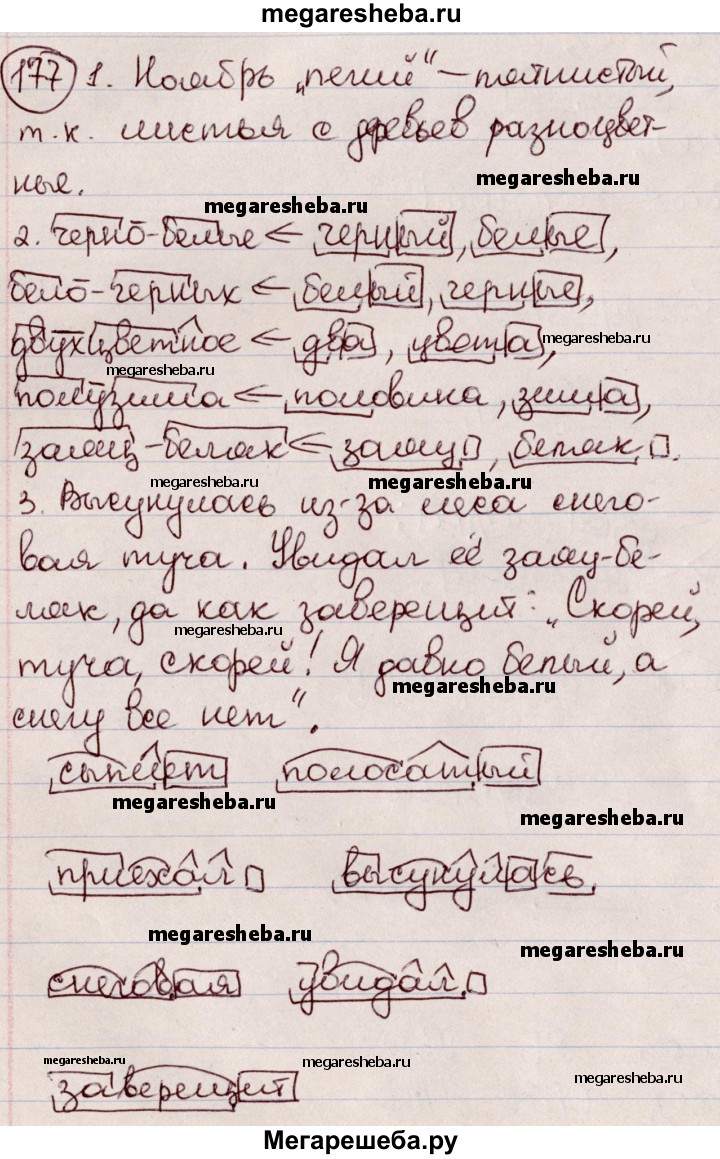 megaresheba.ru
177 1. Ноябрь „пегий“ – пятнистый,
т.к. листья с деревьев разноцвет-
ные.
megaresheba.ru
megaresheba.ru
2. черно-белые ← черный, белые,
бело-черных ← белый, черные,
двухцветное ← два, цвета,
megaresheba.ru
megaresheba.ru
полузима ← половина, зима,
заяц-беляк ← заяц, беляк.
megaresheba.ru megaresheba.ru
3. Высунулась из-за леса снего-
вая туча. Увидал её заяц-бе-
ляк, да как заверещит: „Скорей,
megaresheba.ru
туча, скорей! Я давно белый, а
megaresheba.ru
снегу все нет“.
сыплет полосатый
megaresheba.ru
megaresheba.ru
приехал высунулась
megaresheba.ru
megaresheba.ru
снеговая увидал
megaresheba.ru
megaresheba.ru
megaresheba.ru
заверещит
Мегарешеба.ру